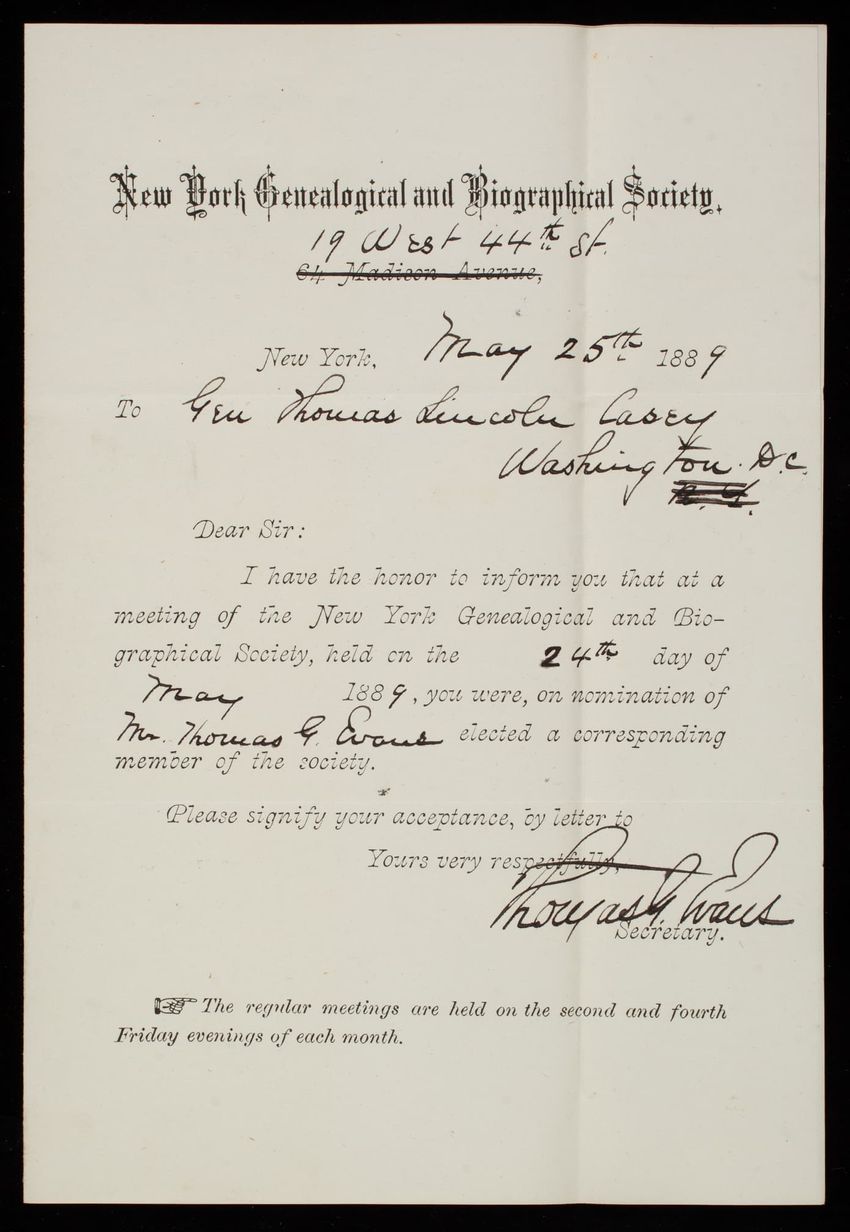 New York Genealogical and Biographical Society.
19 West 44th St.
64 Madison Avenue,
New York, May 25th 1889
To Gen Thomas Lincoln Casey
Washington. D.C.
N.Y.
Dear Sir:
I have the honor to inform you that at a
meeting of the New York Genealogical and Bio-
graphical Society, held on the 24th day of
May 1889, you were, on nomination of
Mr. Thomas G. Evans elected a corresponding
member of the society.
Please signify your acceptance, by letter to
Yours very respectfully,
Thomas G. Evans
Secretary.
☞ The regular meetings are held on the second and fourth
Friday evenings of each month.